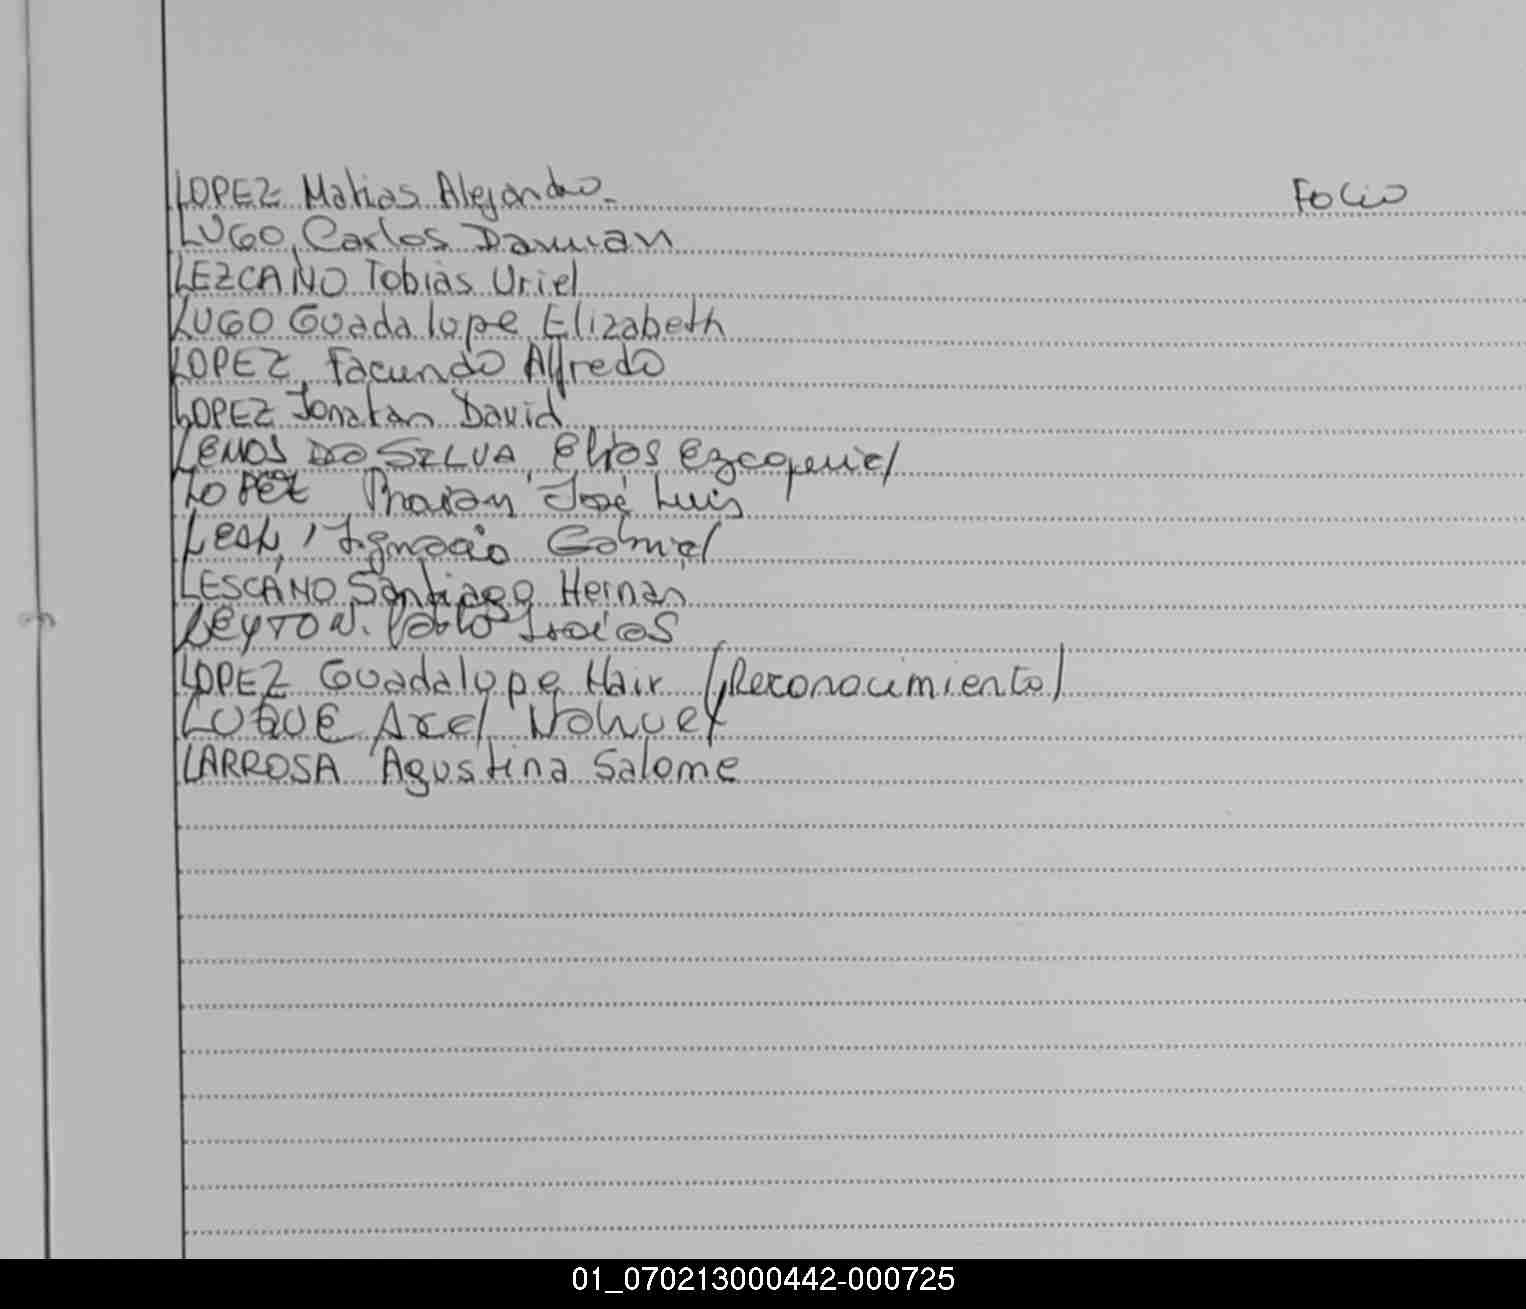 LOPEZ Matias Alejandro. Folio
LUGO, Carlos Damian
LEZCANO Tobias Uriel
LUGO Guadalupe Elizabeth
LOPEZ, Facundo Alfredo
LOPEZ Jonatan David
LEMOS DO SILVA, Elias
LOPEZ José Luis
LEAL, Ignacio Gabriel
LESCANO Santiago Hernan
LEYTON. Pablo Isaias
LOPEZ Guadalupe Mair (Reconocimiento)
LUQUE, Axel Nahuel
LARROSA Agustina Salome
01_070213000442-000725